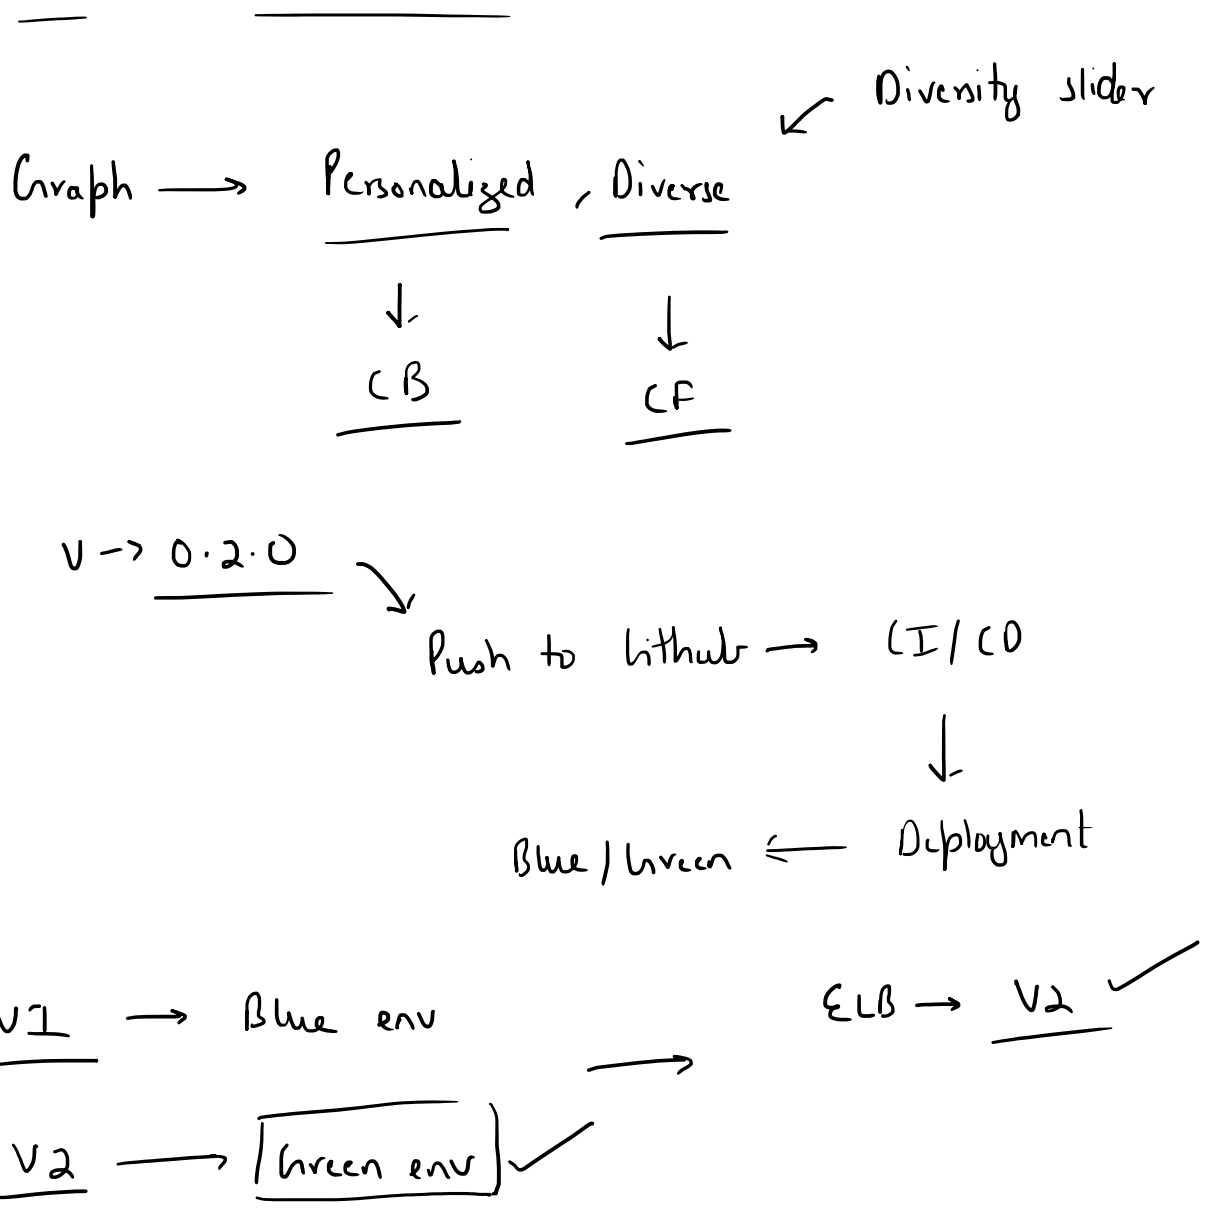 Diversity slider
Graph → Personalized , Diverse
↓ ↓
CB CF
V → 0.2.0
Push to Github → CI/CD
↓
Blue/Green ← Deployment
V1 → Blue env
ELB → V2 ✓
V2 → Green env ✓